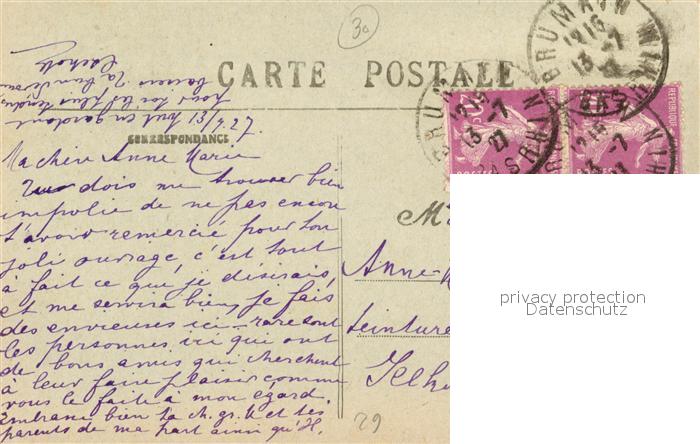 3a
CARTE POSTALE
CORRESPONDANCE
13/7.27.
tout en gardant
pour toi les plus tendres
baisers
Ma chère Anne Marie
Tu dois me trouver bien
impolie de ne pas encore
t'avoir remercié pour ton
joli ouvrage, c'est tout
à fait ce que je désirais,
et me servira bien, je fais
des envieuses ici - rare sont
les personnes ici qui ont
de bons amis qui cherchent
à leur faire plaisir comme
vous le faite à mon égard.
Embrasse bien ta ch. gr. M et tes
parents de ma part ainsi qu'H.
BRUMATH
BAS RHIN
1215
13-7
27
M
Anne-M
teinture
29
privacy protection
Datenschutz